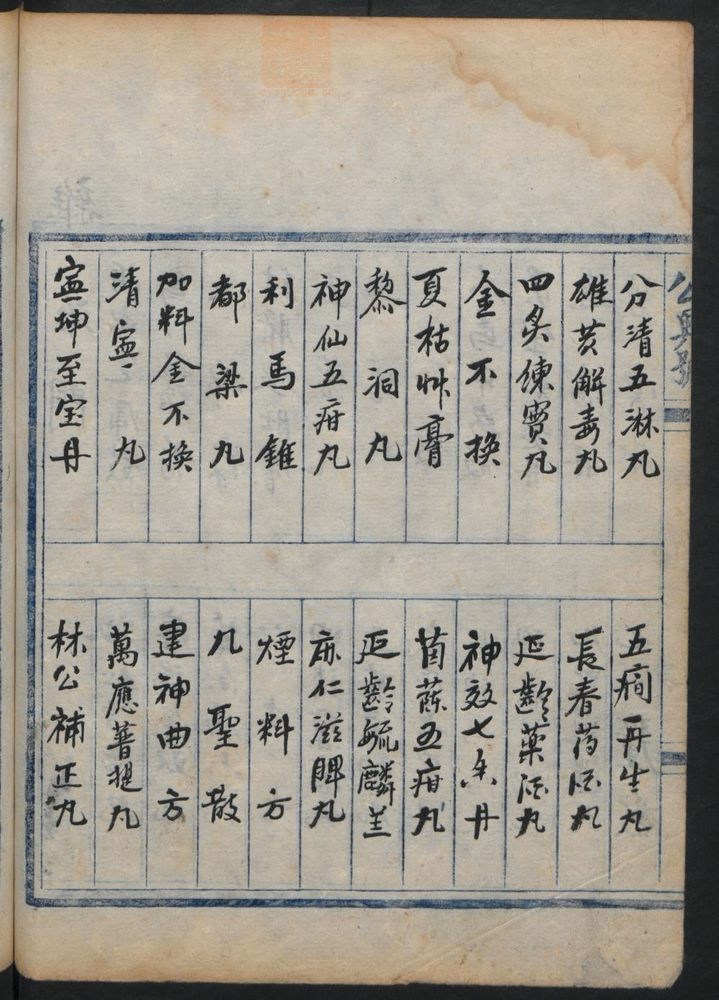 公興號
分清五淋丸
雄黄解毒丸
四炙練實丸
金不换
夏枯艸膏
黎洞丸
神仙五疳丸
利馬錐
都梁丸
加料金不换
清寧丸
寧坤至宝丹
五癎再生丸
長春药酒丸
延齡藥酒丸
神效七丹
茵蔯五疳丸
延齡毓麟
麻仁滋脾丸
煙料方
九聖散
建神曲方
萬應菩提丸
林公補正丸